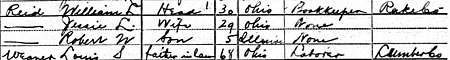 Reid William L Head 30 Ohio Bookkeeper Rake Co
— Jessie L Wife 29 Ohio None
— Robert W Son 5 Illinois None
Weaver Louis S Father in law 68 Ohio Laborer Lumber Co